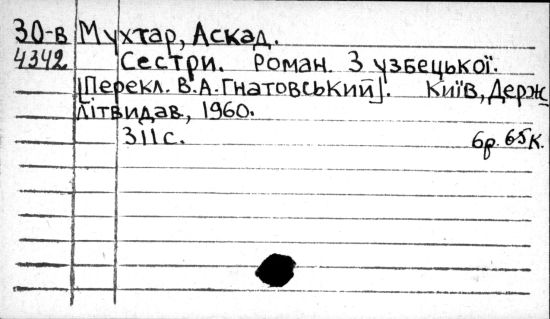 30-в Мухтар, Аскад.
4342 Сестри. Роман. З узбецької.
[Перекл. В.А.Гнатовський]. Київ, Держ-
літвидав, 1960.
311с. 6р. 65к.